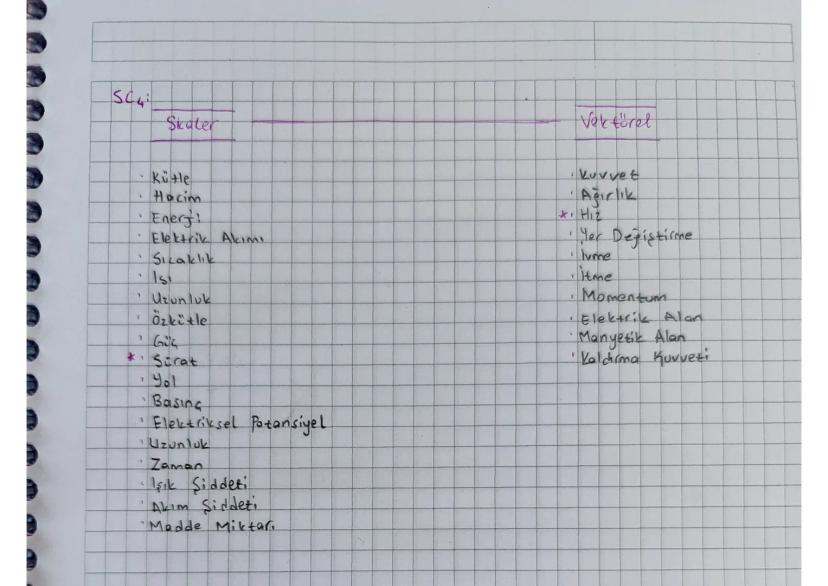 SC4:
Skaler
Kütle
Hacim
Enerji
Elektrik Akımı
Sıcaklık
Isı
Uzunluk
Özkütle
Güç
* Sürat
Yol
Basınç
Elektriksel Potansiyel
Uzunluk
Zaman
Işık Şiddeti
Akım Şiddeti
Madde Miktarı
Vektörel
Kuvvet
Ağırlık
* Hız
Yer Değiştirme
İvme
İtme
Momentum
Elektrik Alan
Manyetik Alan
Kaldırma Kuvveti